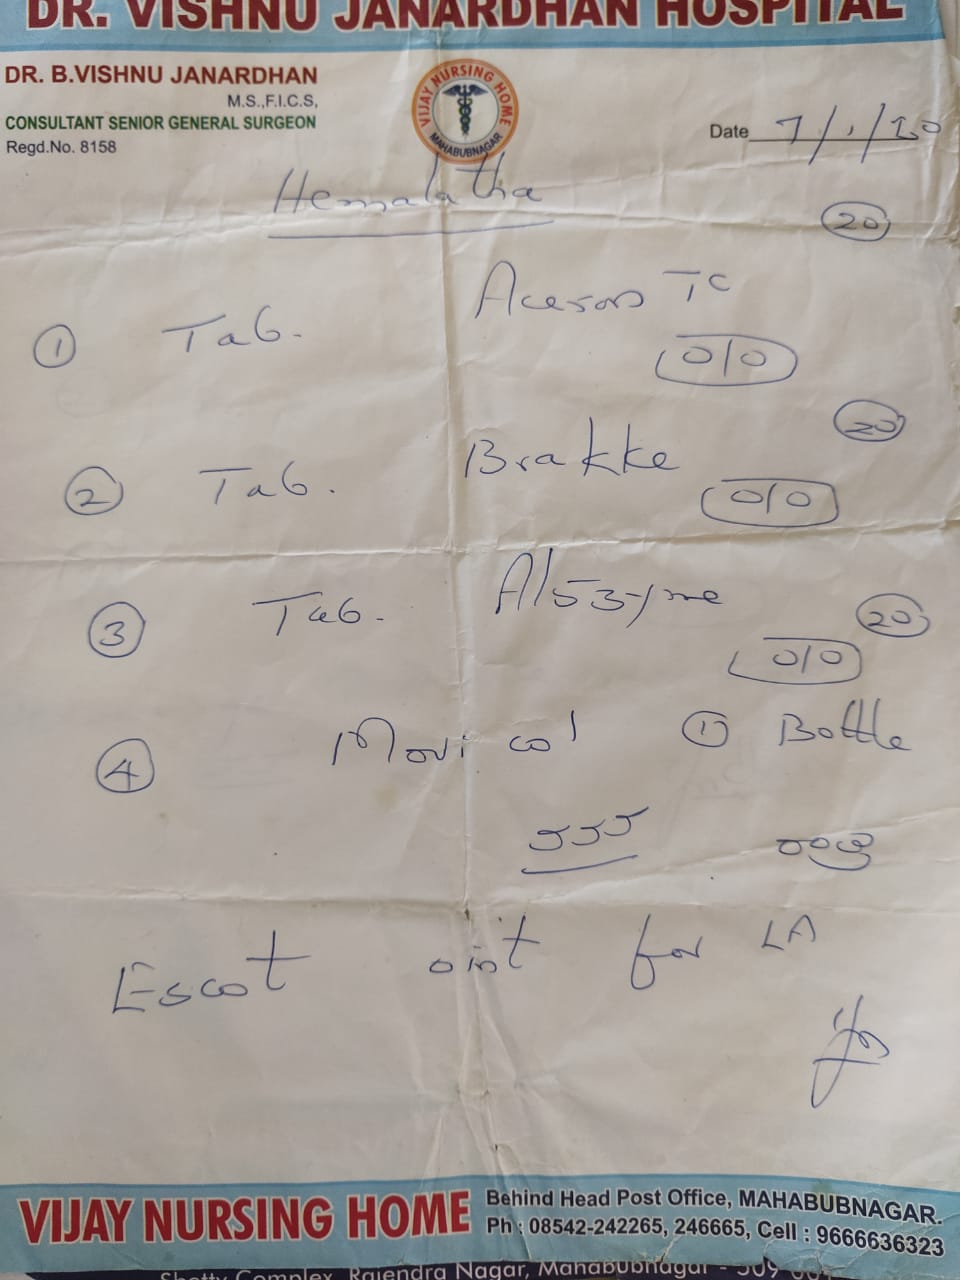 DR. VISHNU JANARDHAN HOSPITAL
DR. B.VISHNU JANARDHAN
M.S.,F.I.C.S,
CONSULTANT SENIOR GENERAL SURGEON
Regd.No. 8158
VIJAY NURSING HOME
MAHABUBNAGAR
Date 7/1/20
Hemalatha
20
① Tab. TC
0/0
20
② Tab. Brakke
0/0
③ Tab. 20
0/0
④ Movicol ① Bottle
555
Escot oint for LA
VIJAY NURSING HOME
Behind Head Post Office, MAHABUBNAGAR.
Ph : 08542-242265, 246665, Cell : 9666636323
Shetty Complex, Rajendra Nagar, Mahabubnagar - 509